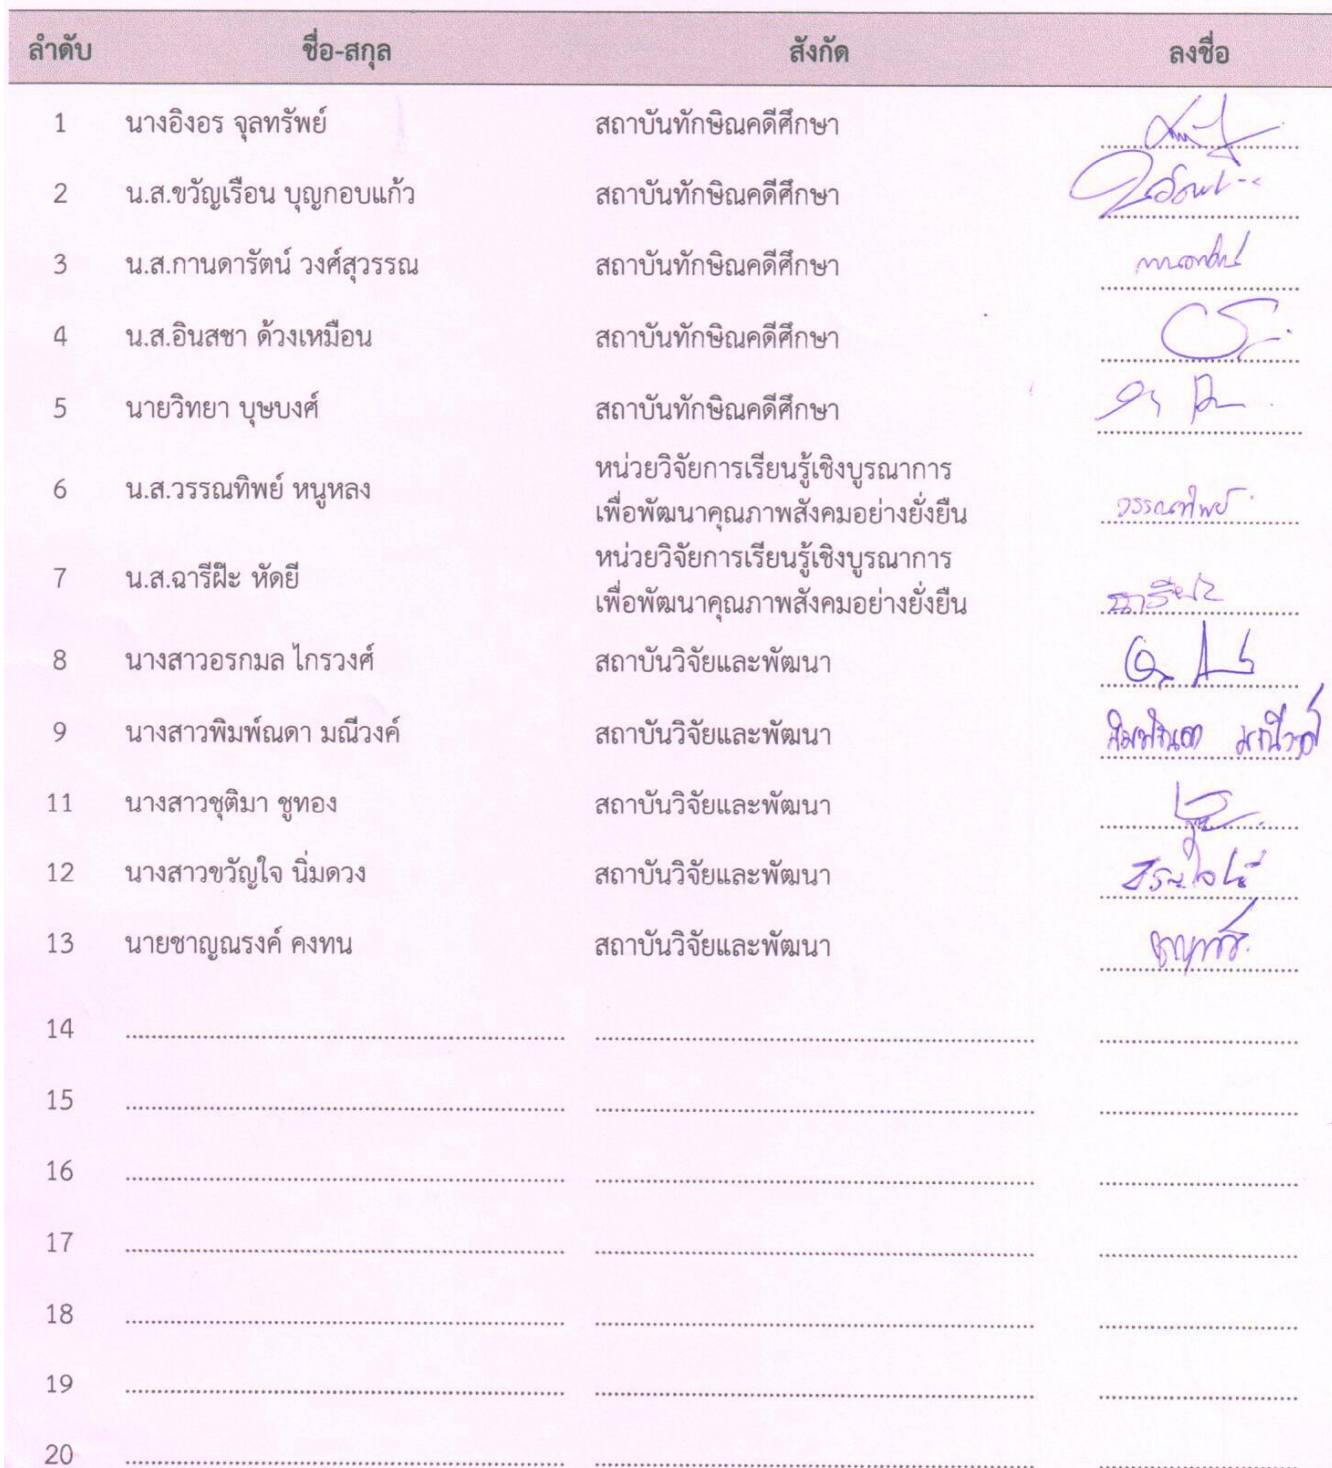 ลำดับ ชื่อ-สกุล สังกัด ลงชื่อ
1 นางอิงอร จุลทรัพย์ สถาบันทักษิณคดีศึกษา
2 น.ส.ขวัญเรือน บุญกอบแก้ว สถาบันทักษิณคดีศึกษา
3 น.ส.กานดารัตน์ วงศ์สุวรรณ สถาบันทักษิณคดีศึกษา กานดารัตน์
4 น.ส.อินสชา ด้วงเหมือน สถาบันทักษิณคดีศึกษา
5 นายวิทยา บุษบงศ์ สถาบันทักษิณคดีศึกษา
หน่วยวิจัยการเรียนรู้เชิงบูรณาการ
6 น.ส.วรรณทิพย์ หนูหลง เพื่อพัฒนาคุณภาพสังคมอย่างยั่งยืน วรรณทิพย์
หน่วยวิจัยการเรียนรู้เชิงบูรณาการ
7 น.ส.ฉารีฝ๊ะ หัดยี เพื่อพัฒนาคุณภาพสังคมอย่างยั่งยืน
8 นางสาวอรกมล ไกรวงศ์ สถาบันวิจัยและพัฒนา
9 นางสาวพิมพ์ณดา มณีวงค์ สถาบันวิจัยและพัฒนา พิมพ์ณดา มณีวงค์
11 นางสาวชุติมา ชูทอง สถาบันวิจัยและพัฒนา
12 นางสาวขวัญใจ นิ่มดวง สถาบันวิจัยและพัฒนา
13 นายชาญณรงค์ คงทน สถาบันวิจัยและพัฒนา
14
15
16
17
18
19
20